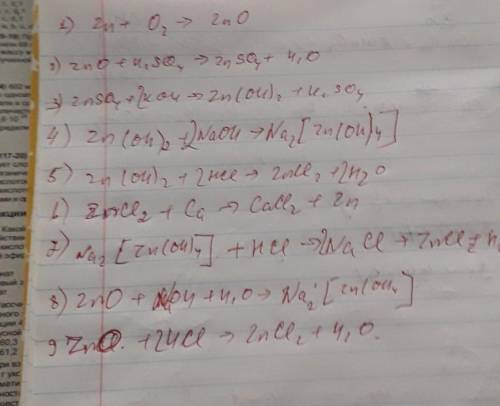 1) Zn + O2 → ZnO
2) ZnO + H2SO4 → ZnSO4 + H2O
3) ZnSO4 + 2KOH → Zn(OH)2 + K2SO4
4) Zn(OH)2 + 2NaOH → Na2[Zn(OH)4]
5) Zn(OH)2 + 2HCl → ZnCl2 + 2H2O
6) ZnCl2 + Ca → CaCl2 + Zn
7) Na2[Zn(OH)4] + HCl → 2NaCl + ZnCl2 +
8) ZnO + NaOH + H2O → Na2[Zn(OH)4]
9 ZnO + 2HCl → ZnCl2 + H2O.